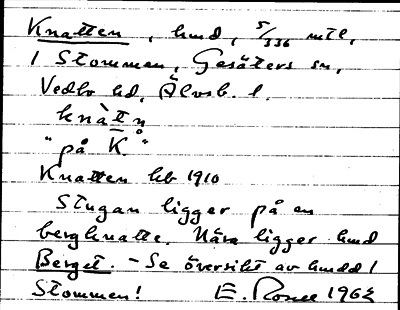 Knatten, hmd, 5/336 mtl,
1 Stommen, Gesäters sn,
Vedbo hd, Älvsb. l.
knàtn̥
"på K̊."
Knatten kb 1910
Stugan ligger på en
bergknatte. Nära ligger hmd
Berget. - Se översikt av hmdd /
Stommen! E. Rosell 1962